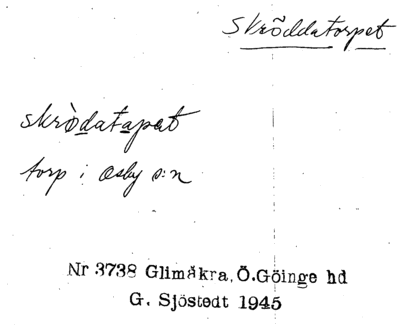 Skröddatorpet
skròdatapat
torp i Osby s:n
Nr 3738 Glimåkra, Ö.Göinge hd
G. Sjöstedt 1945